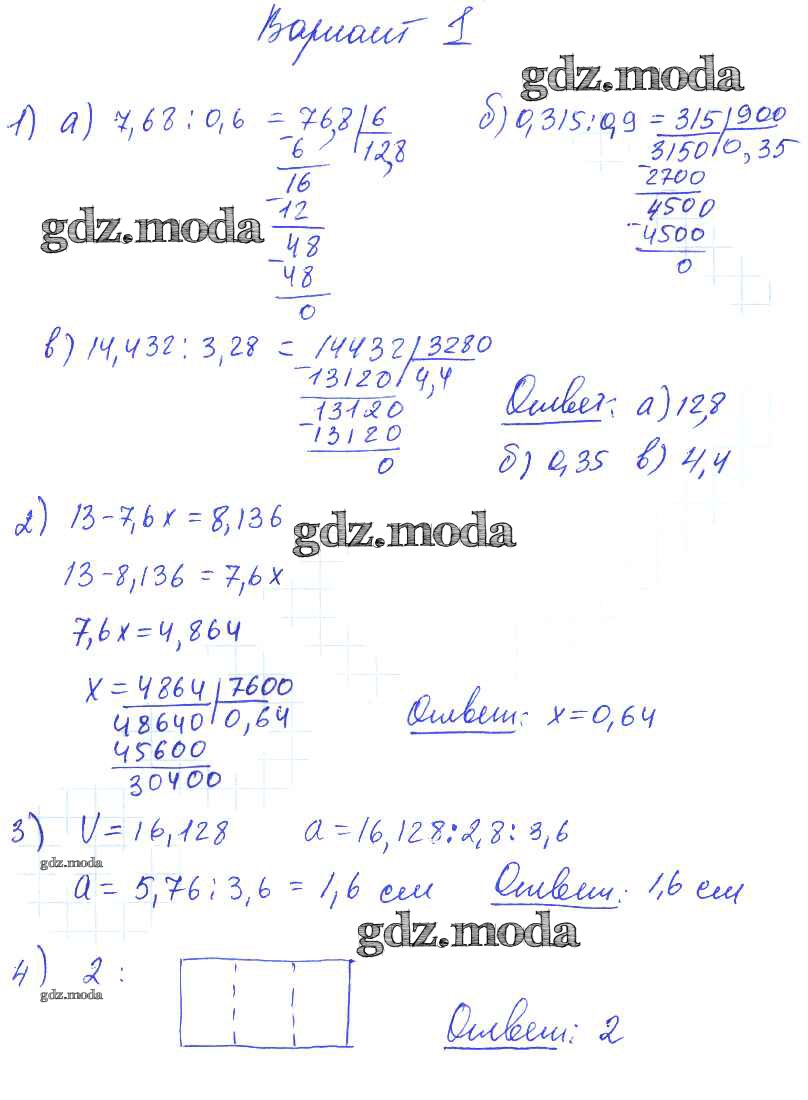 Вариант 1
gdz.moda
1) а) 7,68 : 0,6 = 76,8 | 6
6 12,8
16
12
48
48
0
б) 0,315 : 0,9 = 315 | 900
3150 0,35
2700
4500
4500
0
gdz.moda
в) 14,432 : 3,28 = 14432 | 3280
13120 4,4
13120
13120
0
Ответ: а) 12,8
б) 0,35 в) 4,4
2) 13-7,6x = 8,136
gdz.moda
13-8,136 = 7,6x
7,6x = 4,864
x = 4864 | 7600
48640 0,64
45600
30400
Ответ: x = 0,64
3) V = 16,128 a = 16,128 : 2,8 : 3,6
gdz.moda
a = 5,76 : 3,6 = 1,6 см Ответ: 1,6 см
gdz.moda
4) 2 :
gdz.moda
Ответ: 2